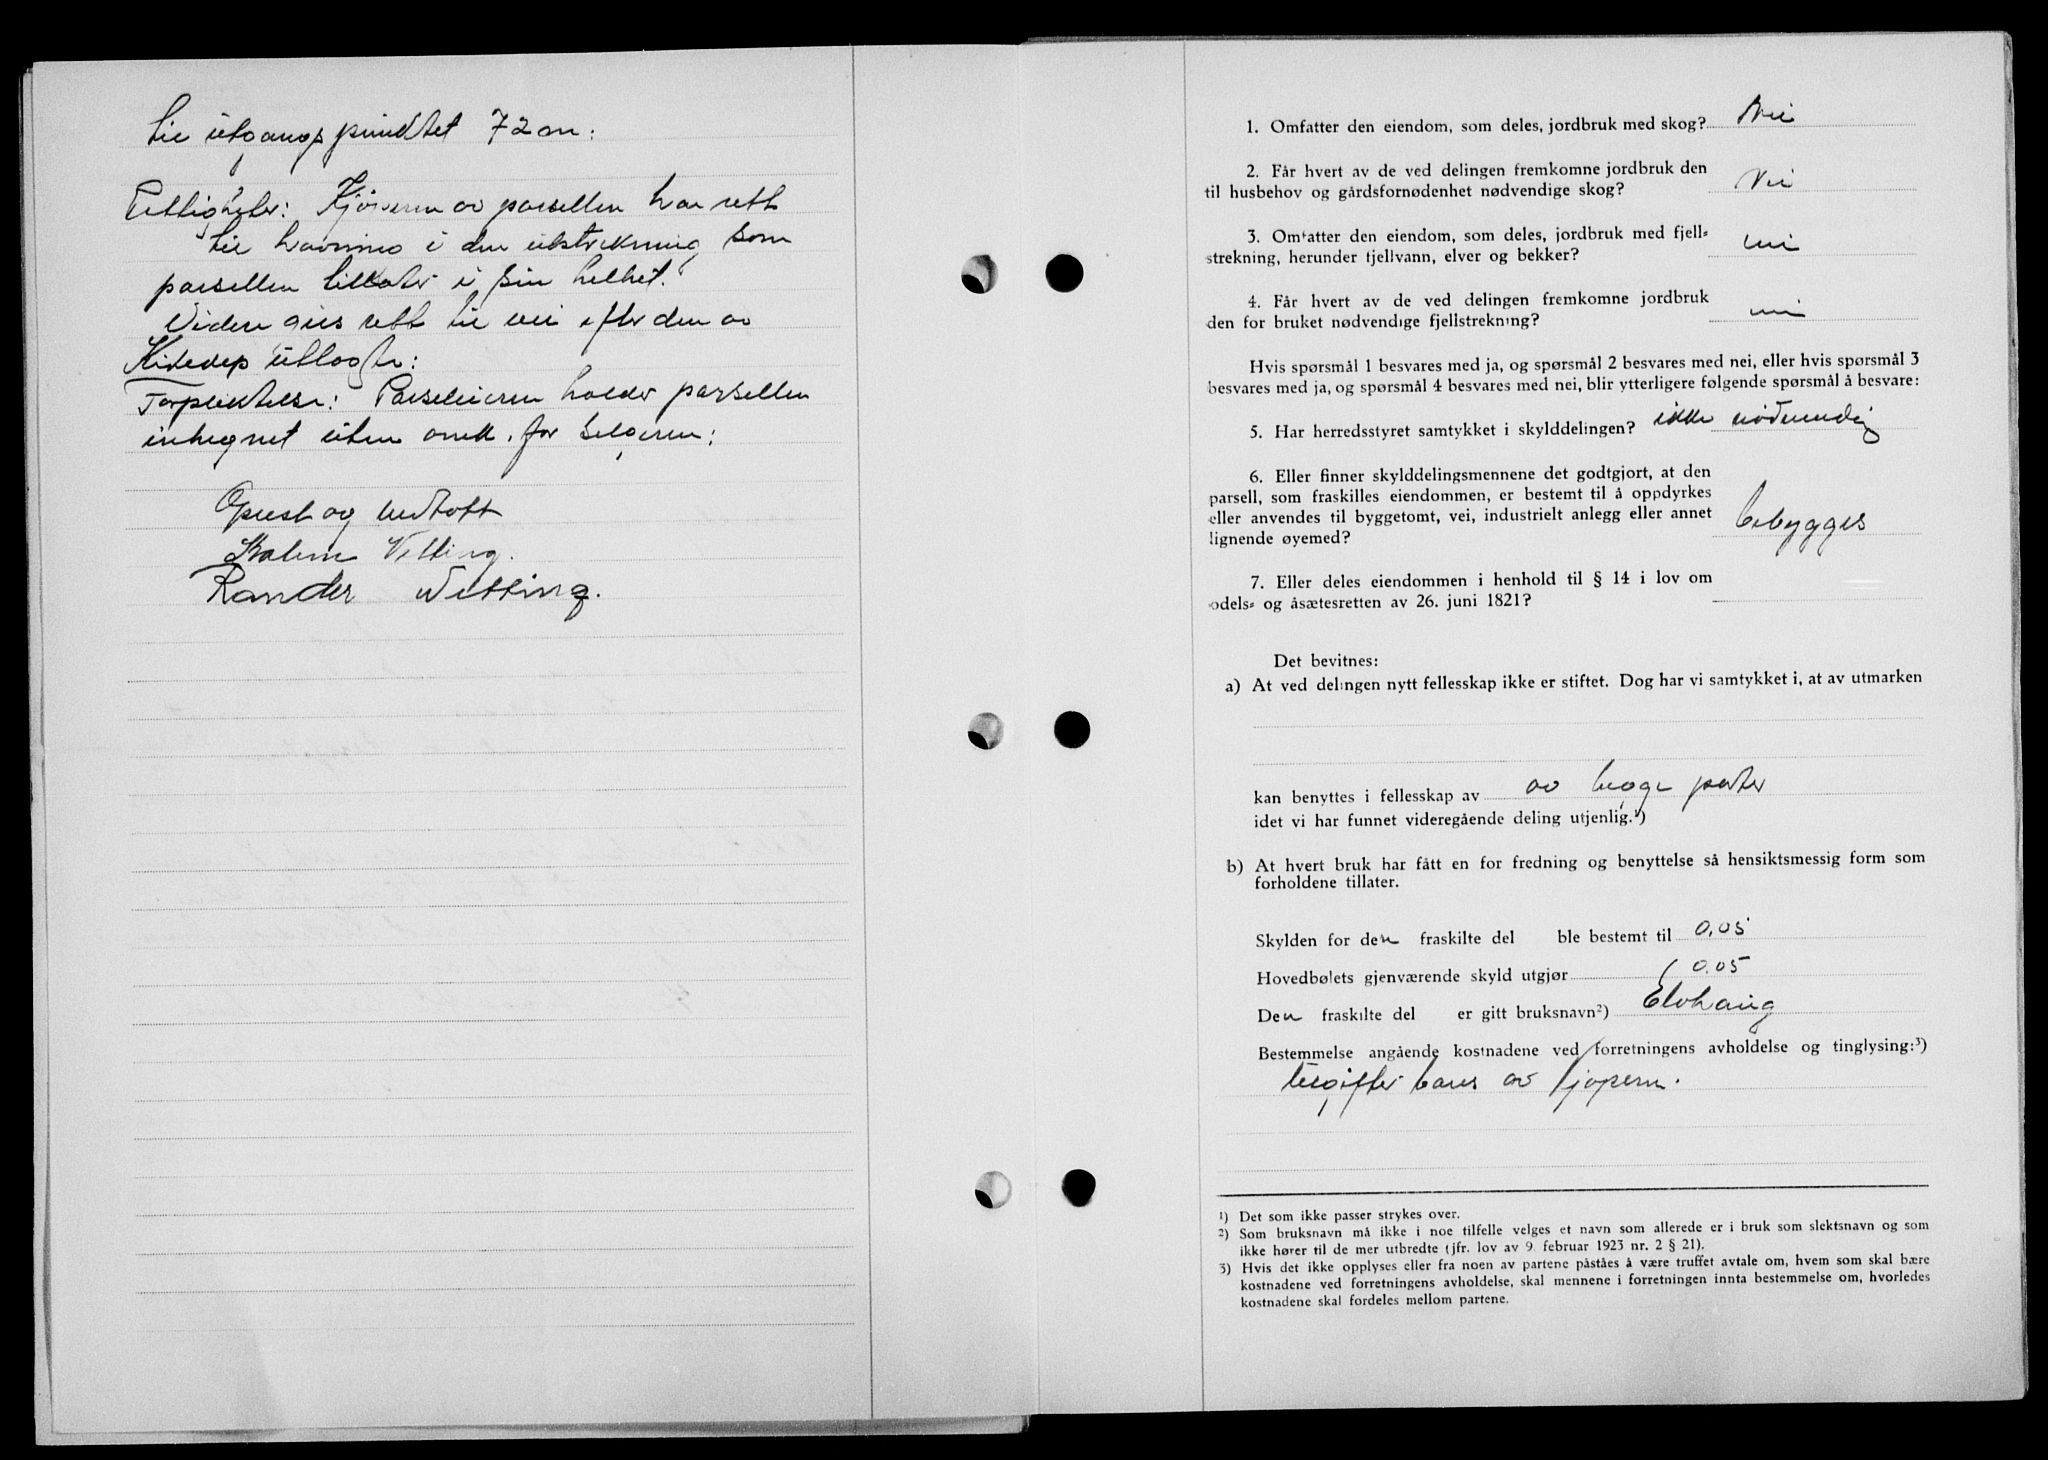 til utgangspunktet 72 m:
Rettigheter: Kjøperen av parsellen har rett
til havning i den utstrekning som
parsellen tillater i sin helhet.
Videre gies rett til vei efter den av
utlagte:
Forpliktelse: Parseleieren holder parsellen
inhegnet uten omk. for selgeren:
Oplest og vedtatt
Vetting.
Rander Vetting.
1. Omfatter den eiendom, som deles, jordbruk med skog? Nei
2. Får hvert av de ved delingen fremkomne jordbruk den
til husbehov og gårdsfornødenhet nødvendige skog? Nei
3. Omfatter den eiendom, som deles, jordbruk med fjell-
strekning, herunder fjellvann, elver og bekker? nei
4. Får hvert av de ved delingen fremkomne jordbruk
den for bruket nødvendige fjellstrekning? nei
Hvis spørsmål 1 besvares med ja, og spørsmål 2 besvares med nei, eller hvis spørsmål 3
besvares med ja, og spørsmål 4 besvares med nei, blir ytterligere følgende spørsmål å besvare:
5. Har herredsstyret samtykket i skylddelingen? ikke nødvendig
6. Eller finner skylddelingsmennene det godtgjort, at den
parsell, som fraskilles eiendommen, er bestemt til å oppdyrkes
eller anvendes til byggetomt, vei, industrielt anlegg eller annet
lignende øyemed? bebygges
7. Eller deles eiendommen i henhold til § 14 i lov om
odels- og åsætesretten av 26. juni 1821?
Det bevitnes:
a) At ved delingen nytt fellesskap ikke er stiftet. Dog har vi samtykket i, at av utmarken
kan benyttes i fellesskap av av begge parter
idet vi har funnet videregående deling utjenlig.¹)
b) At hvert bruk har fått en for fredning og benyttelse så hensiktsmessig form som
forholdene tillater.
Skylden for den fraskilte del ble bestemt til 0,05
Hovedbølets gjenværende skyld utgjør 0.05
Den fraskilte del er gitt bruksnavn²) Elvhaug
Bestemmelse angående kostnadene ved forretningens avholdelse og tinglysing:³)
utgifter bæres av kjøperen.
¹) Det som ikke passer strykes over.
²) Som bruksnavn må ikke i noe tilfelle velges et navn som allerede er i bruk som slektsnavn og som
ikke hører til de mer utbredte (jfr. lov av 9. februar 1923 nr. 2 § 21).
³) Hvis det ikke opplyses eller fra noen av partene påståes å være truffet avtale om, hvem som skal bære
kostnadene ved forretningens avholdelse, skal mennene i forretningen innta bestemmelse om, hvorledes
kostnadene skal fordeles mellom partene.